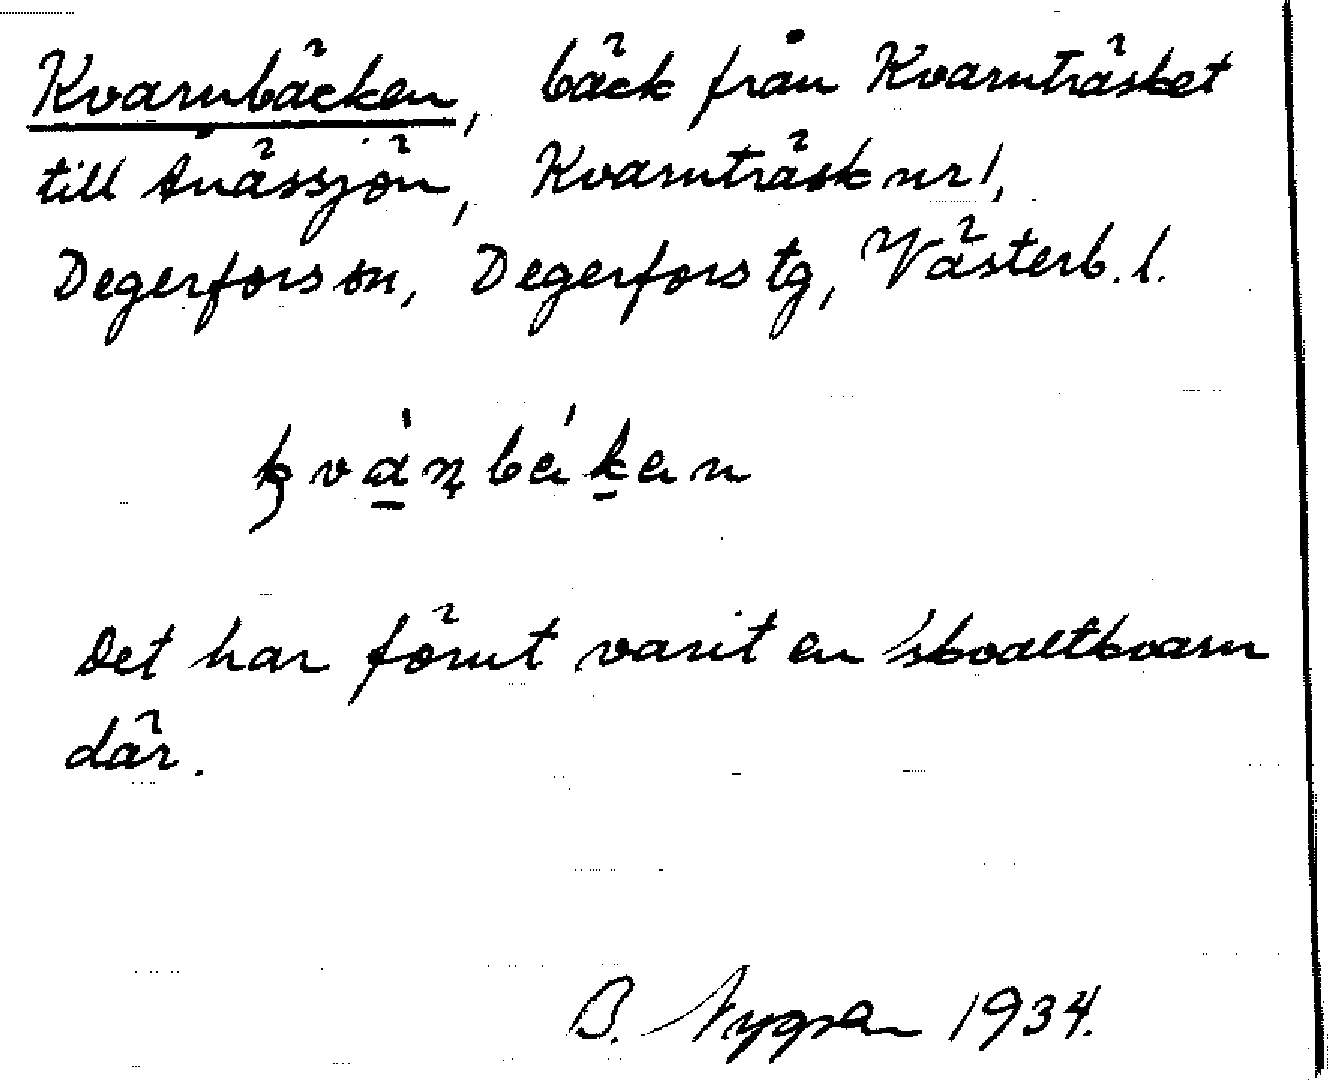 Kvarnbäcken, bäck från Kvarnträsket
till Ånässjön, Kvarnträsk nr 1,
Degerfors sn, Degerfors tg, Västerb. l.
Det har förut varit en skvaltkvarn
där.
B. Nygren 1934.